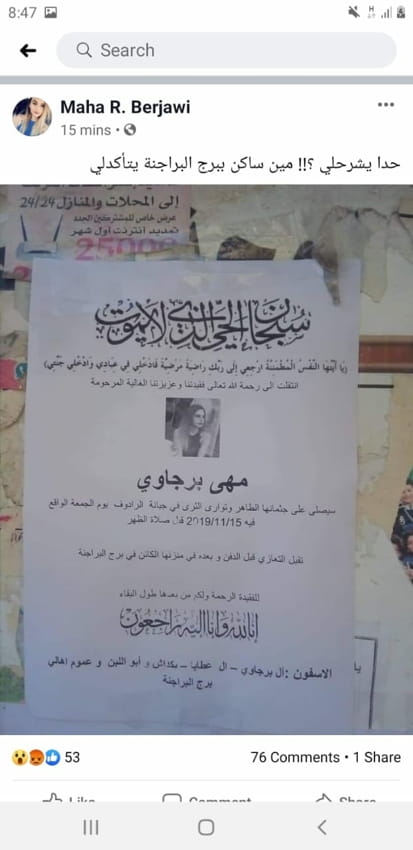 8:47
Search
Maha R. Berjawi
15 mins
حدا يشرحلي ؟!! مين ساكن ببرج البراجنة يتأكدلي
إلى المحلات والمنازل 24/24
عرض خاص للمشتركين الجدد
تمديد انترنت اول شهر
25000
سبحان الحي الذي لا يموت
(يا أيتها النفس المطمئنة ارجعي إلى ربك راضية مرضية فادخلي في عبادي وادخلي جنتي)
انتقلت الى رحمة الله تعالى فقيدتنا وعزيزتنا الغالية المرحومة
مهى برجاوي
سيصلى على جثمانها الطاهر وتوارى الثرى في جبانة الرادوف يوم الجمعة الواقع
فيه 2019/11/15 قبل صلاة الظهر
تقبل التعازي قبل الدفن و بعده في منزلها الكائن في برج البراجنة
للفقيدة الرحمة ولكم من بعدها طول البقاء
إنا لله وانا اليه راجعون
الاسفون :آل برجاوي – ال عطايا – بكداش و أبو اللبن و عموم اهالي
برج البراجنة
53
76 Comments • 1 Share
Like Comment Share